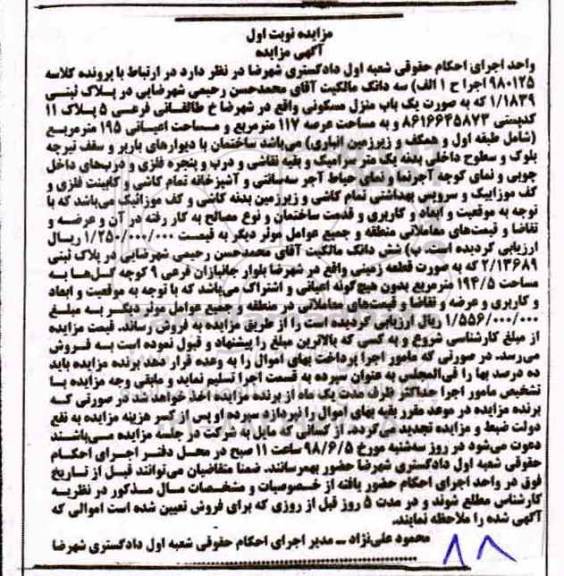 مزایده نوبت اول
آگهی مزایده
واحد اجرای احکام حقوقی شعبه اول دادگستری شهرضا در نظر دارد در ارتباط با پرونده کلاسه
۹۸۰۱۲۵ اجرا ح ۱ الف) سه دانگ مالکیت آقای محمدحسن رحیمی شهرضایی در پلاک ثبتی
۱/۱۸۳۹ که به صورت یک باب منزل مسکونی واقع در شهرضا خ طالقانی فرعی ۵ پلاک ۱۱
کدپستی ۸۶۱۶۶۳۵۸۷۳ و به مساحت عرصه ۱۱۷ مترمربع و مساحت اعیانی ۱۹۵ مترمربع
(شامل طبقه اول و همکف و زیرزمین انباری) می‌باشد ساختمان با دیوارهای باربر و سقف تیرچه
بلوک و سطوح داخلی بدنه یک متر سرامیک و بقیه نقاشی و درب و پنجره فلزی و درب‌های داخل
چوبی و نمای کوچه آجرنما و نمای حیاط آجر سه‌سانتی و آشپزخانه تمام کاشی و کابینت فلزی و
کف موزاییک و سرویس بهداشتی تمام کاشی و زیرزمین بدنه کاشی و کف موزائیک می‌باشد که با
توجه به موقعیت و ابعاد و کاربری و قدمت ساختمان و نوع مصالح به کار رفته در آن و عرضه و
تقاضا و قیمت‌های معاملاتی منطقه و جمیع عوامل موثر دیگر به قیمت ۱/۲۵۰/۰۰۰/۰۰۰ ریال
ارزیابی گردیده است. ب) شش دانگ مالکیت آقای محمدحسن رحیمی شهرضایی در پلاک ثبتی
۲/۱۳۶۸۹ که به صورت قطعه زمینی واقع در شهرضا بلوار جانبازان فرعی ۹ کوچه گل‌ها به
مساحت ۱۹۴/۵ مترمربع بدون هیچ‌گونه اعیانی و اشتراک می‌باشد که با توجه به موقعیت و ابعاد
و کاربری و عرضه و تقاضا و قیمت‌های معاملاتی در منطقه و جمیع عوامل موثر دیگر به مبلغ
۱/۵۵۶/۰۰۰/۰۰۰ ریال ارزیابی گردیده است را از طریق مزایده به فروش رساند. قیمت مزایده
از مبلغ کارشناسی شروع و به کسی که بالاترین مبلغ را پیشنهاد و قبول نموده است به فروش
می‌رسد. در صورتی که مامور اجرا پرداخت بهای اموال را به وعده قرار دهد برنده مزایده باید
ده درصد بها را فی‌المجلس به عنوان سپرده به قسمت اجرا تسلیم نماید و مابقی وجه مزایده با
تشخیص مامور اجرا حداکثر ظرف مدت یک ماه از برنده مزایده اخذ خواهد شد در صورتی که
برنده مزایده در موعد مقرر بقیه بهای اموال را نپردازد سپرده او پس از کسر هزینه مزایده به نفع
دولت ضبط و مزایده تجدید می‌گردد. از کسانی که مایل به شرکت در جلسه مزایده می‌باشند
دعوت می‌شود در روز سه‌شنبه مورخ ۹۸/۶/۵ ساعت ۱۱ صبح در محل دفتر اجرای احکام
حقوقی شعبه اول دادگستری شهرضا حضور بهمرسانند. ضمنا متقاضیان می‌توانند قبل از تاریخ
فوق در واحد اجرای احکام حضور یافته از خصوصیات و مشخصات مال مذکور در نظریه
کارشناس مطلع شوند و در مدت ۵ روز قبل از روزی که برای فروش تعیین شده است اموالی که
آگهی شده را ملاحظه نمایند.
محمود علی‌نژاد ــ مدیر اجرای احکام حقوقی شعبه اول دادگستری شهرضا
۱۸۸